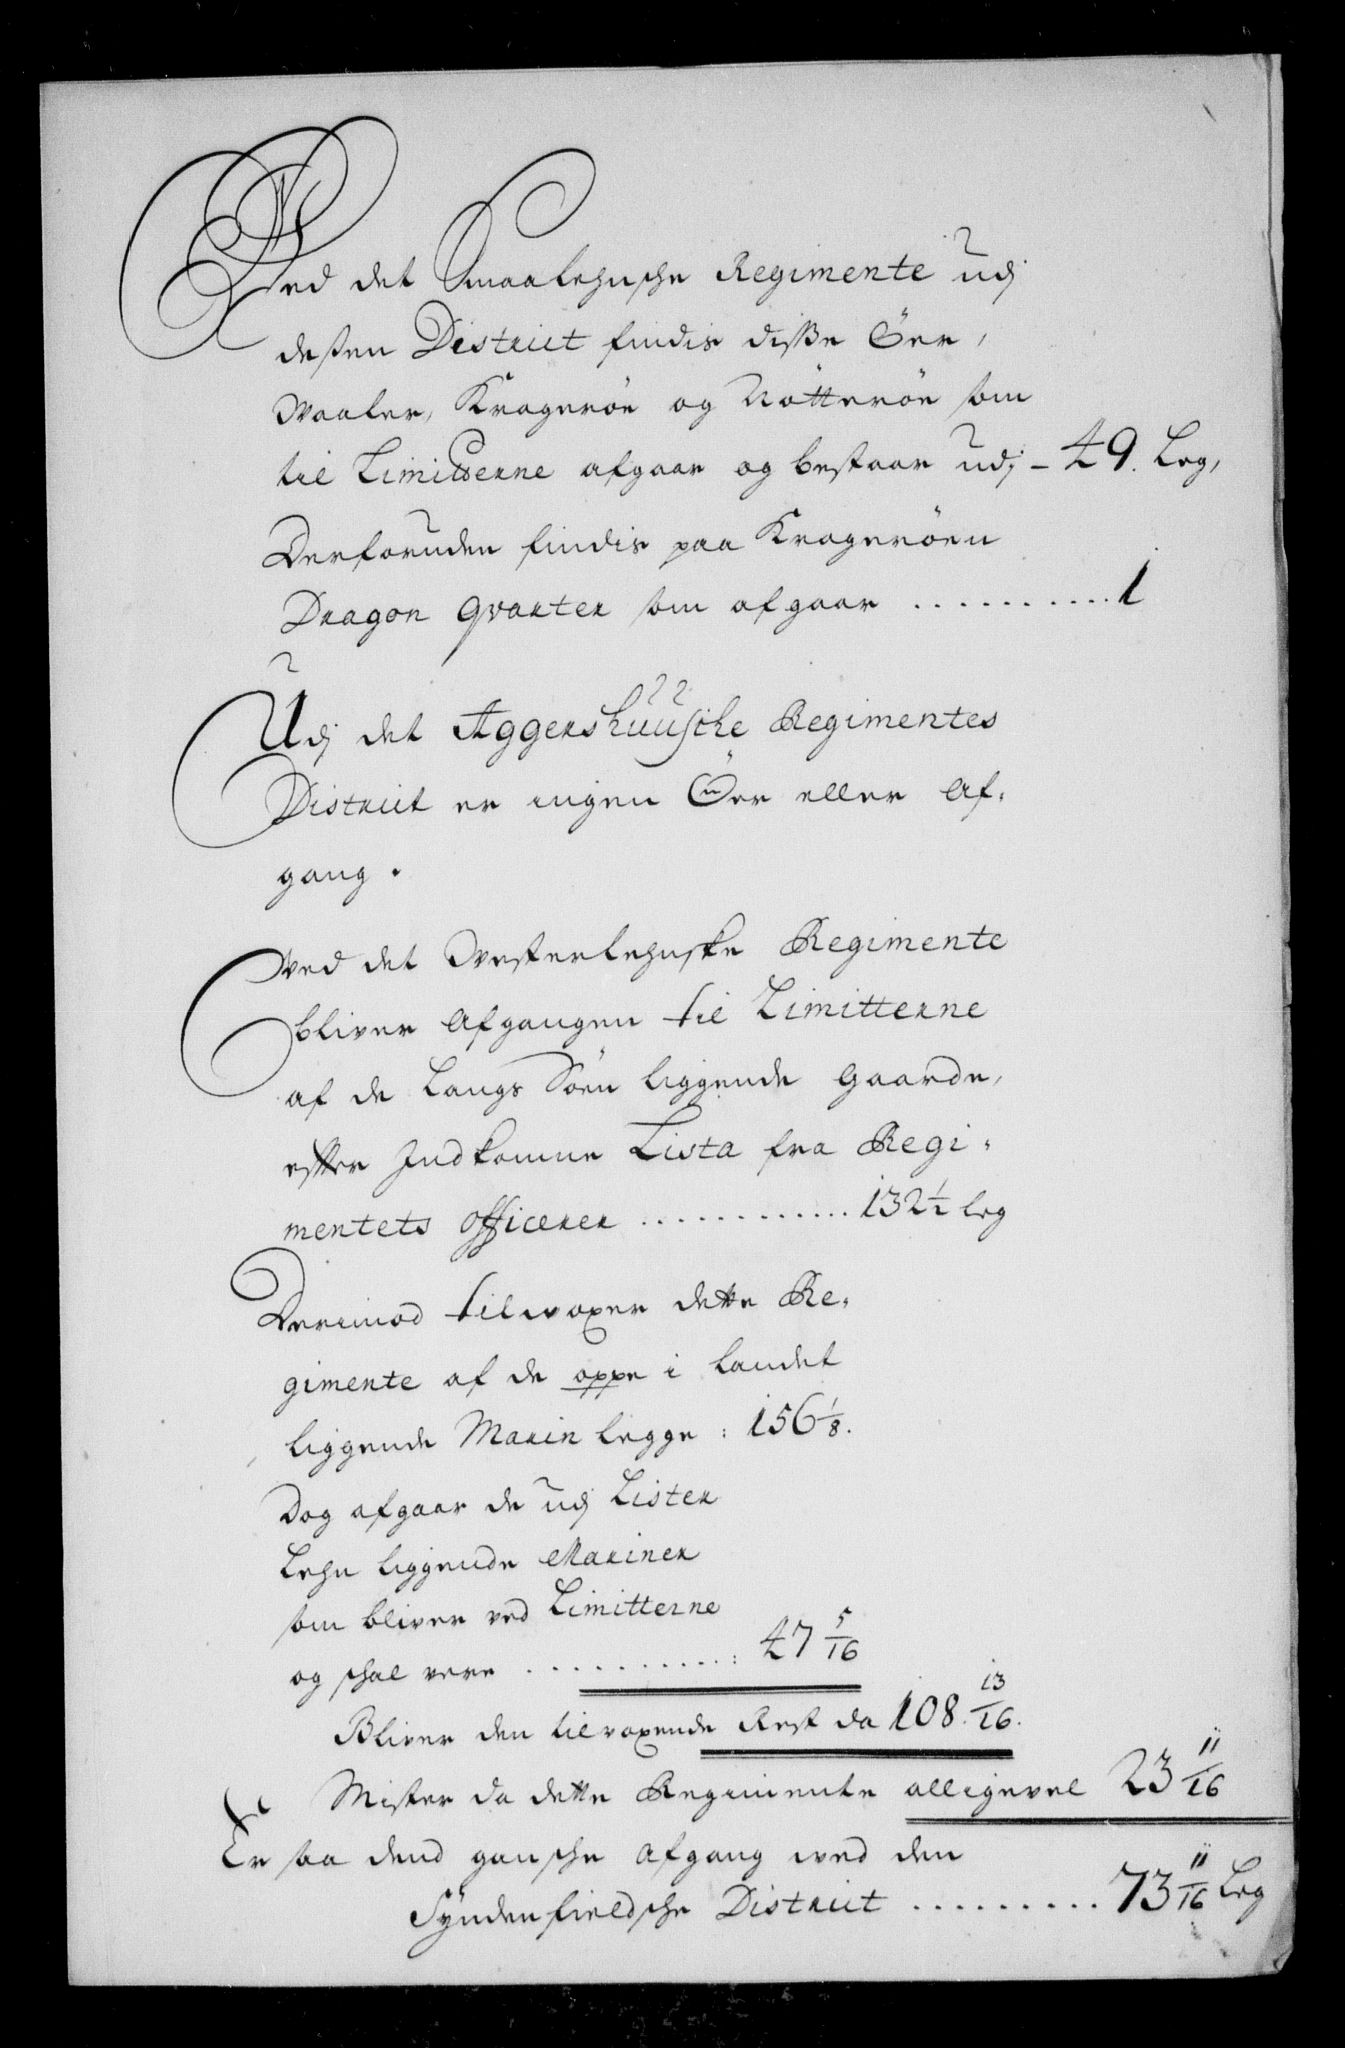 Ved det Smaalehnsche Regimente udj
dessen District findis disse Öer,
Waaler, Kragerøe og Nötteröe som
til Limitterne afgaar og bestaar udj - 49. Leg,
Derforuden findis paa Krageröen
Dragon Qvarter som afgaar . . . . . . . . . . 1
Udj det Aggershuusche Regimentes
District er ingen Öer eller Af-
gang.
Ved det Westerlehnske Regimente
bliver Afgangen til Limitterne
af de Langs Söen liggende Gaarde,
efter Indkomne Lista fra Regi-
mentets officerer . . . . . . . . . . . . 132 1/2 Leg
Derimod tilwoxer dette Re-
gimente af de oppe i Landet
liggende Marin Legge : 156 1/8.
Dog afgaar de udj Lister
Lehn liggende Mariner
som bliver ved Limitterne
og schal vere . . . . . . . . . . : 47 5/16
Bliver den tilvoxende Rest da 108. 13/16.
Mister da dette Regimente alligevel 23 11/16
Er saa dend gansche Afgang wed den
Syndenfieldsche District . . . . . . . . . 73 11/16 Leg